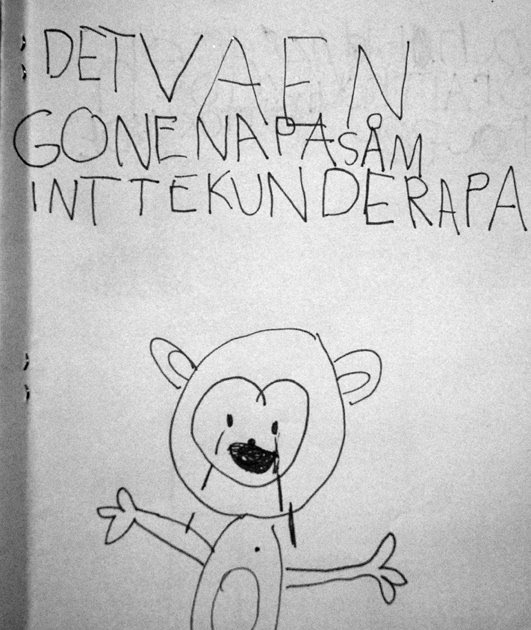 DET VA EN
GONENAPA SÅM
INTTE KUNDE RAPA